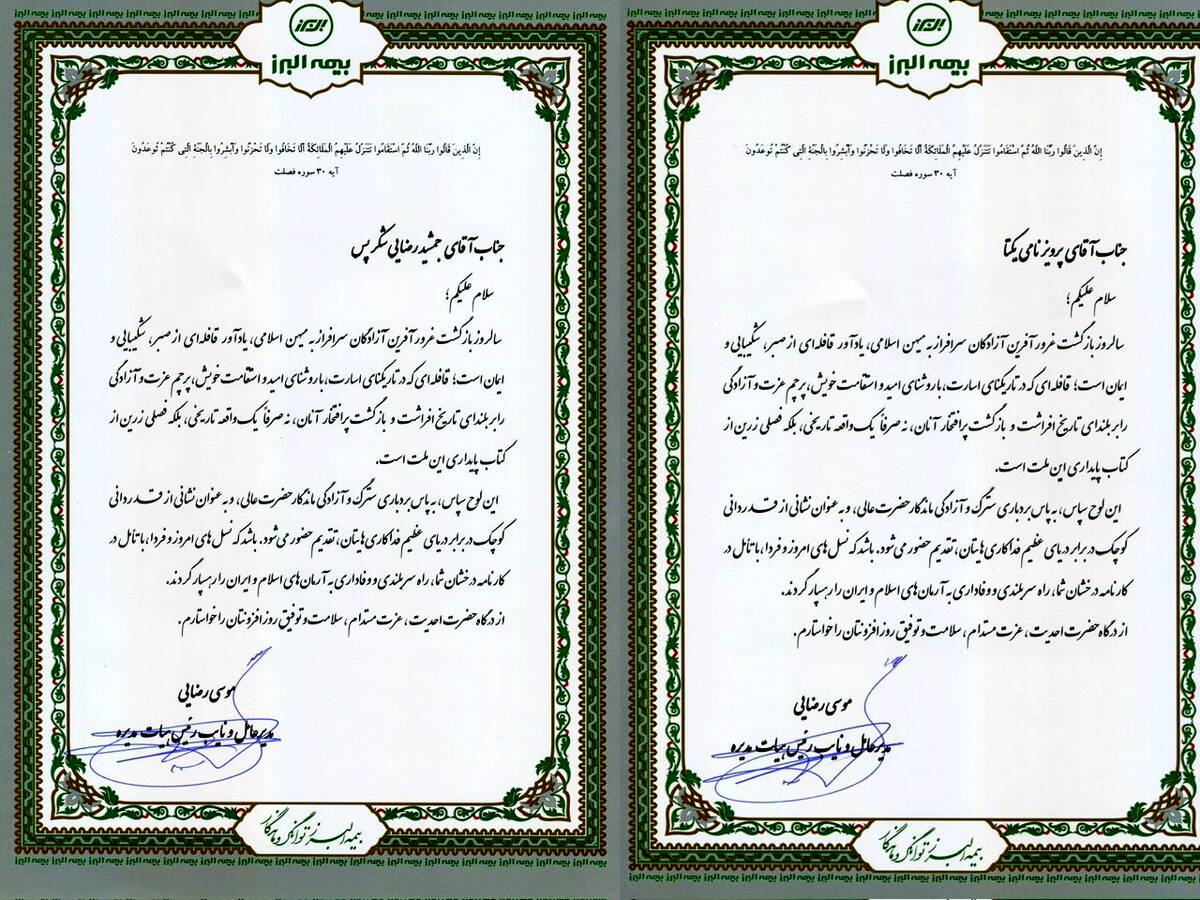 البرز
بیمه البرز
إِنَّ الَّذِينَ قَالُوا رَبُّنَا اللَّهُ ثُمَّ اسْتَقَامُوا تَتَنَزَّلُ عَلَيْهِمُ الْمَلَائِكَةُ أَلَّا تَخَافُوا وَلَا تَحْزَنُوا وَأَبْشِرُوا بِالْجَنَّةِ الَّتِي كُنْتُمْ تُوعَدُونَ
آیه ۳۰ سوره فصلت
جناب آقای جمشید رضایی شکرپس
سلام علیکم؛
سالروز بازگشت غرورآفرین آزادگان سرافراز به میهن اسلامی، یادآور قافله‌ای از صبر، شکیبایی و
ایمان است؛ قافله‌ای که در تاریکنای اسارت، با روشنای امید و استقامت خویش، پرچم عزت و آزادگی
را بر بلندای تاریخ افراشت و بازگشت پرافتخار آنان، نه صرفاً یک واقعه تاریخی، بلکه فصلی زرین از
کتاب پایداری این ملت است.
این لوح سپاس، به پاس بردباری سترگ و آزادگی ماندگار حضرت عالی، و به عنوان نشانی از قدردانی
کوچک در برابر دریای عظیم فداکاری‌هایتان، تقدیم حضور می‌شود. باشد که نسل‌های امروز و فردا، با تأمل در
کارنامه درخشان شما، راه سربلندی و وفاداری به آرمان‌های اسلام و ایران را رهسپار گردند.
از درگاه حضرت احدیت، عزت مستدام، سلامت و توفیق روزافزونتان را خواستارم.
موسی رضایی
مدیرعامل و نایب رئیس هیات مدیره
بیمه البرز توانگر و ماندگار
البرز
بیمه البرز
إِنَّ الَّذِينَ قَالُوا رَبُّنَا اللَّهُ ثُمَّ اسْتَقَامُوا تَتَنَزَّلُ عَلَيْهِمُ الْمَلَائِكَةُ أَلَّا تَخَافُوا وَلَا تَحْزَنُوا وَأَبْشِرُوا بِالْجَنَّةِ الَّتِي كُنْتُمْ تُوعَدُونَ
آیه ۳۰ سوره فصلت
جناب آقای پرویز نامی یکتا
سلام علیکم؛
سالروز بازگشت غرورآفرین آزادگان سرافراز به میهن اسلامی، یادآور قافله‌ای از صبر، شکیبایی و
ایمان است؛ قافله‌ای که در تاریکنای اسارت، با روشنای امید و استقامت خویش، پرچم عزت و آزادگی
را بر بلندای تاریخ افراشت و بازگشت پرافتخار آنان، نه صرفاً یک واقعه تاریخی، بلکه فصلی زرین از
کتاب پایداری این ملت است.
این لوح سپاس، به پاس بردباری سترگ و آزادگی ماندگار حضرت عالی، و به عنوان نشانی از قدردانی
کوچک در برابر دریای عظیم فداکاری‌هایتان، تقدیم حضور می‌شود. باشد که نسل‌های امروز و فردا، با تأمل در
کارنامه درخشان شما، راه سربلندی و وفاداری به آرمان‌های اسلام و ایران را رهسپار گردند.
از درگاه حضرت احدیت، عزت مستدام، سلامت و توفیق روزافزونتان را خواستارم.
موسی رضایی
مدیرعامل و نایب رئیس هیات مدیره
بیمه البرز توانگر و ماندگار